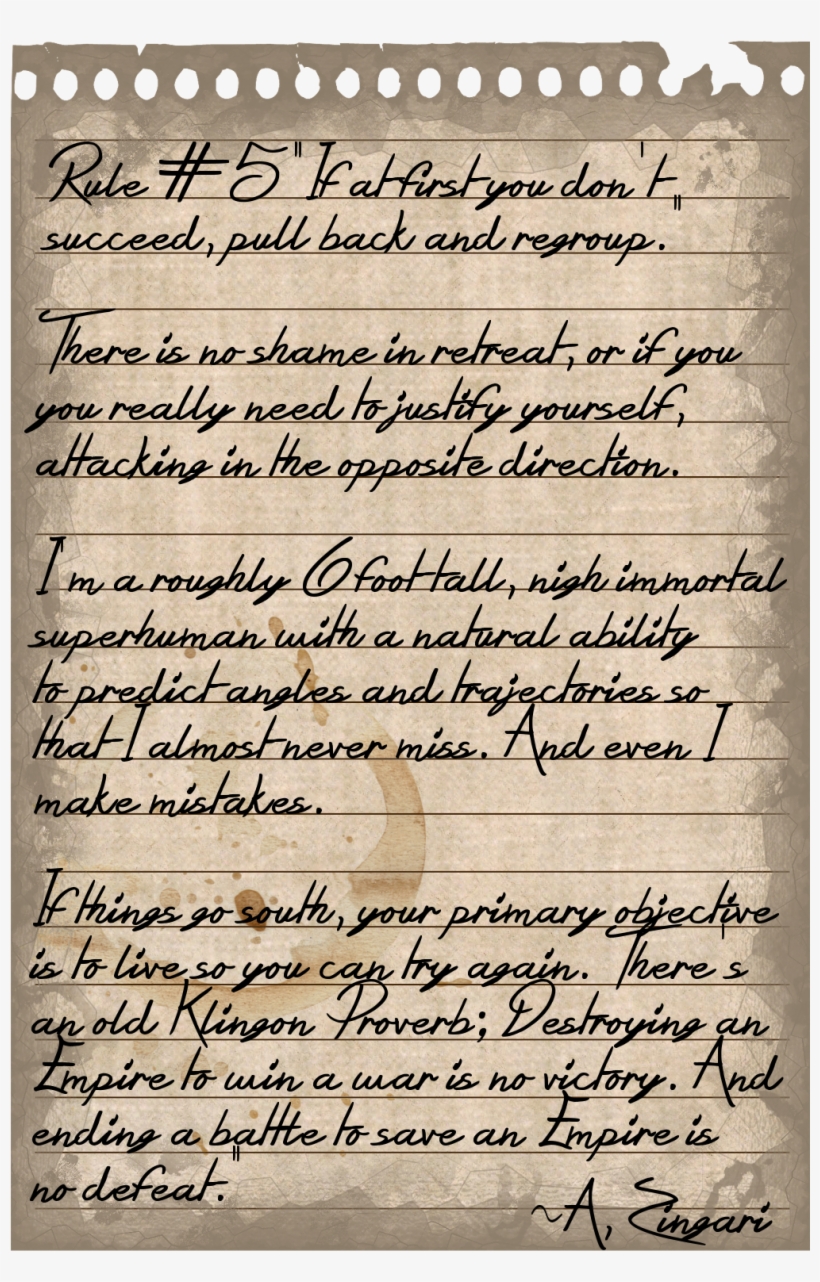 Rule #5 "If at first you don't
succeed, pull back and regroup."
There is no shame in retreat, or if you
you really need to justify yourself,
attacking in the opposite direction.
I'm a roughly 6 foot tall, nigh immortal
superhuman with a natural ability
to predict angles and trajectories so
that I almost never miss. And even I
make mistakes.
If things go south, your primary objective
is to live so you can try again. There's
an old Klingon Proverb; Destroying an
Empire to win a war is no victory. And
ending a battle to save an Empire is
no defeat."
~A, Zingari